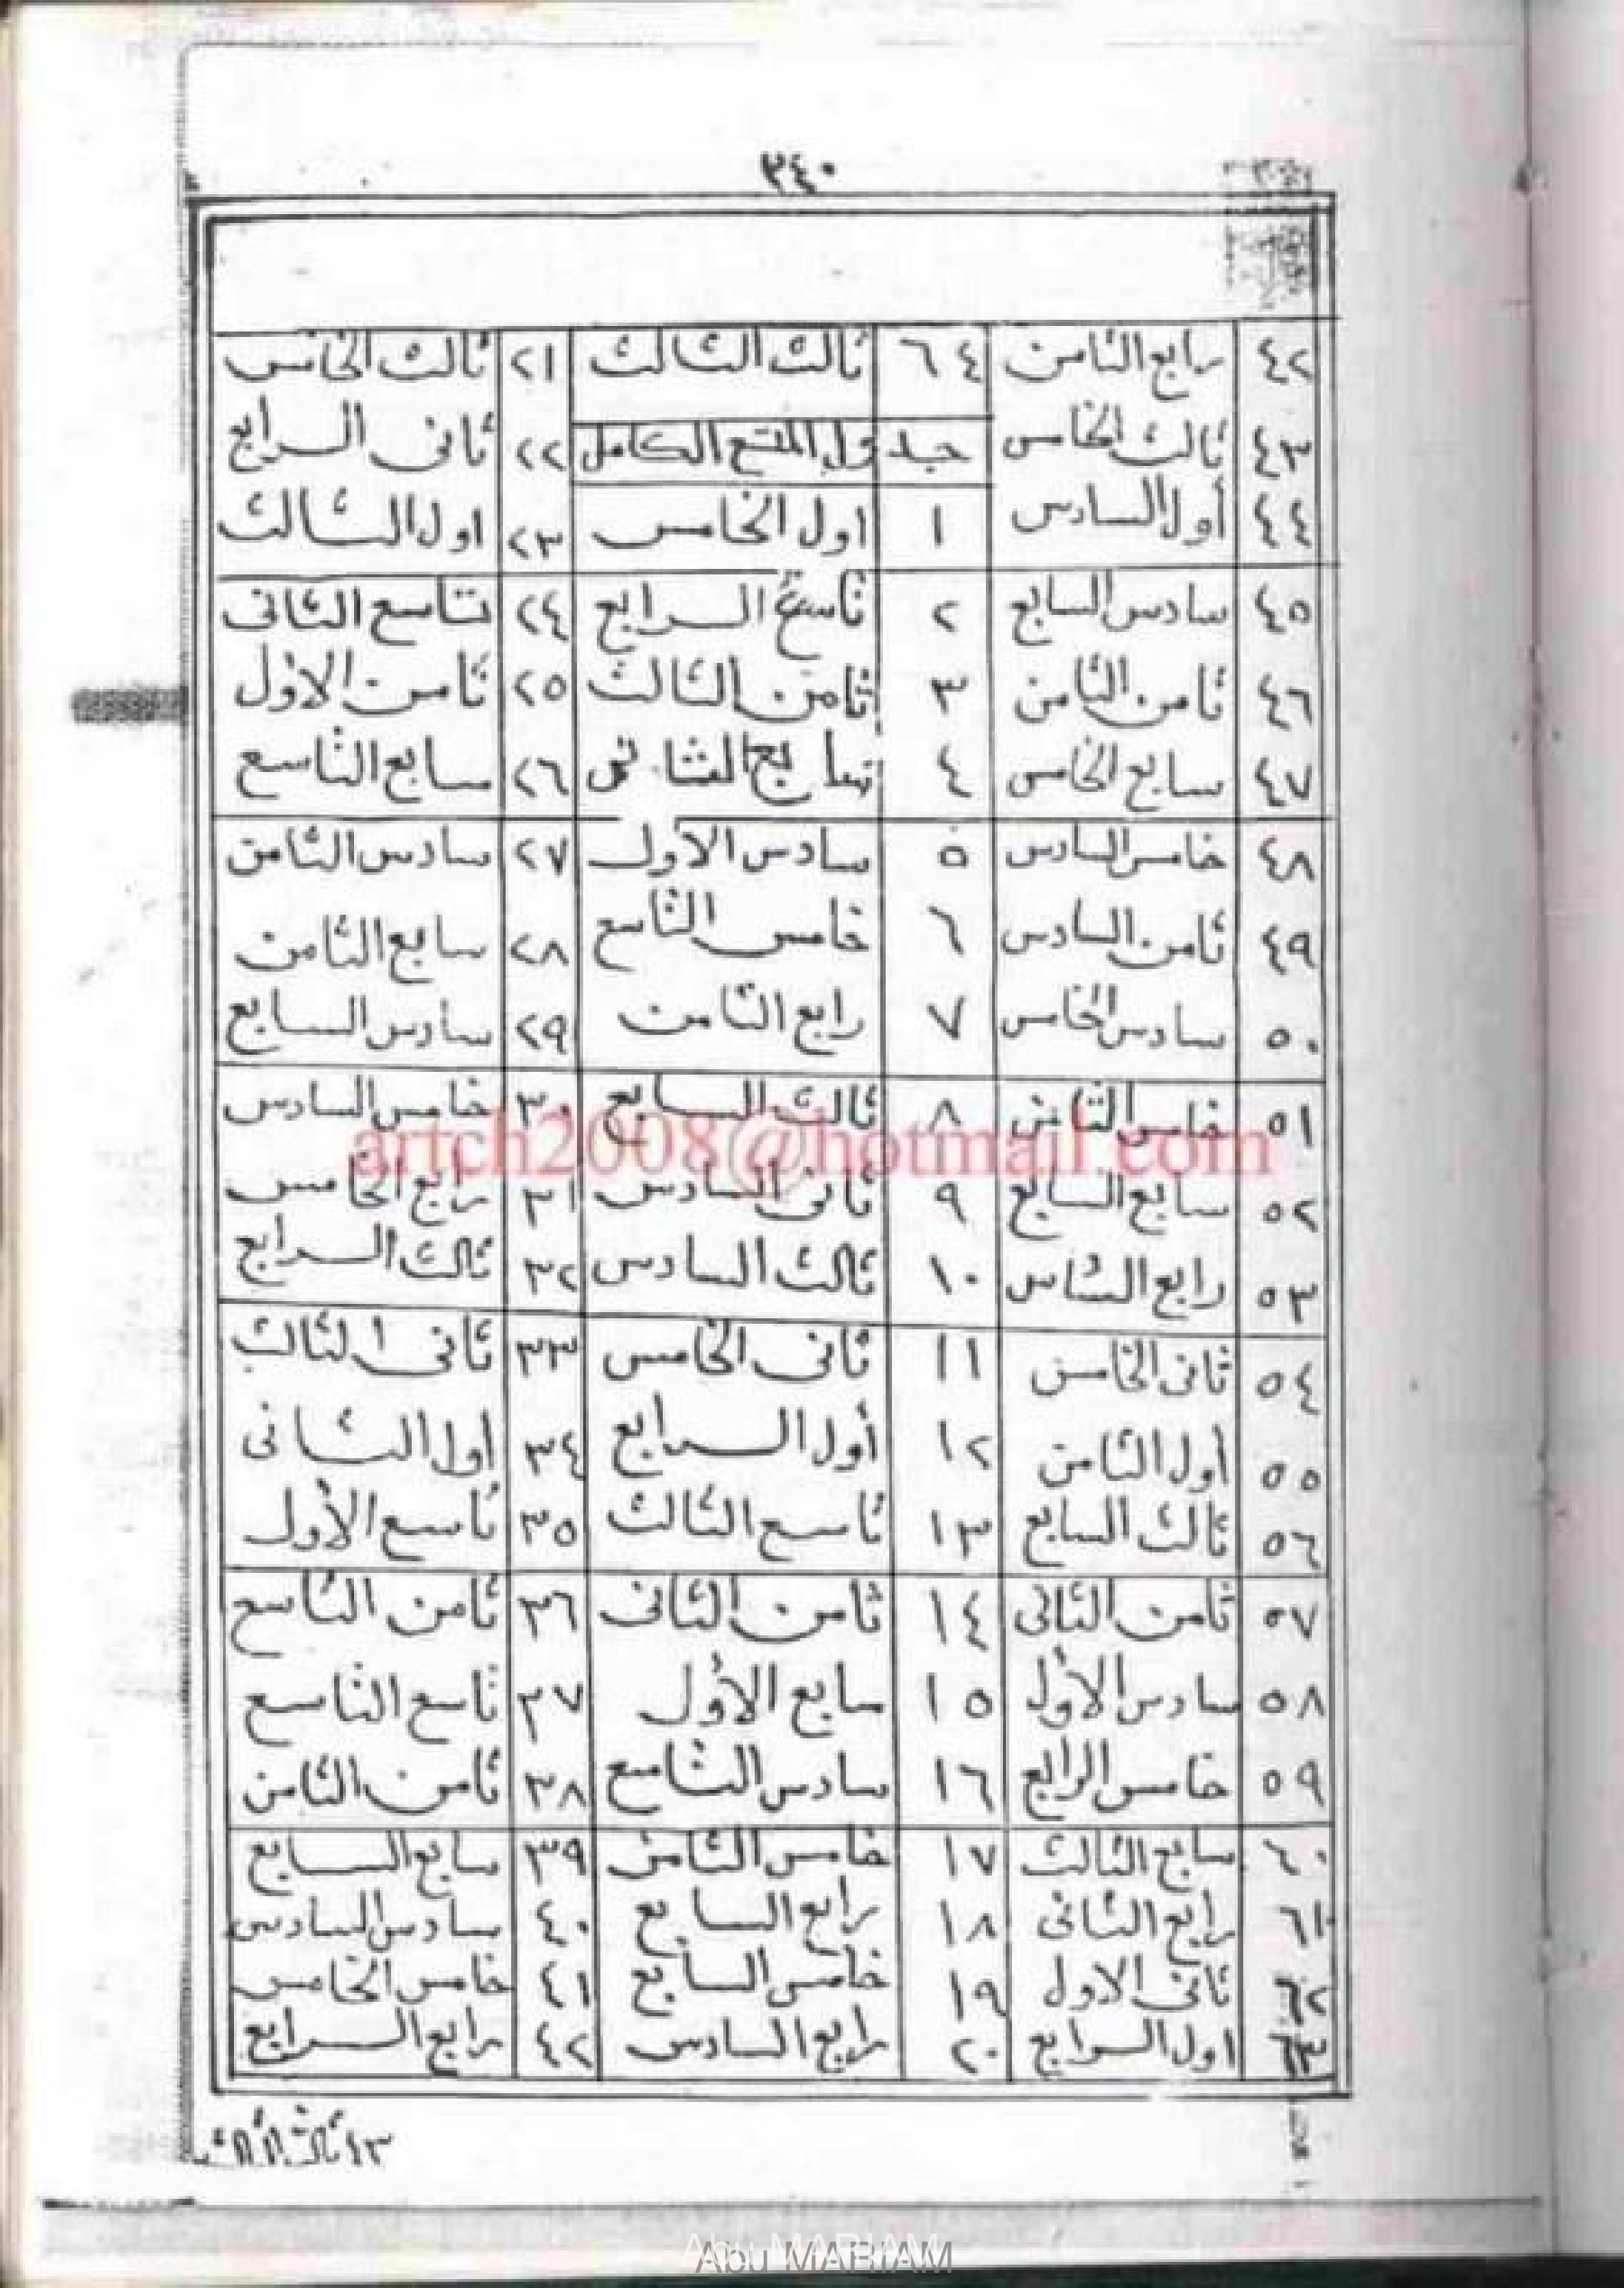 ٣٤٠
٤٢ رابع الثامن ٦٤ ثالث الثالث ٢١ ثالث الخامس
٤٣ ثالث الخامس جد ول المتسع الكامل ٢٢ ثانى الرابع
٤٤ أول السادس ١ اول الخامس ٢٣ اول الثالث
٤٥ سادس السابع ٢ تاسع الرابع ٢٤ تاسع الثانى
٤٦ ثامن الثامن ٣ ثامن الثالث ٢٥ ثامن الاول
٤٧ سابع الخامس ٤ سابع الثانى ٢٦ سابع التاسع
٤٨ خامس السادس ٥ سادس الاول ٢٧ سادس الثامن
٤٩ ثامن السادس ٦ خامس التاسع ٢٨ سابع الثامن
٥٠ سادس الخامس ٧ رابع الثامن ٢٩ سادس السابع
٥١ خامس الثامن ٨ ثالث السابع ٣٠ خامس السادس
artch2008@hotmail.com
٥٢ سابع السابع ٩ ثانى السادس ٣١ رابع الخامس
٥٣ رابع ١٠ ثالث السادس ٣٢ ثالث الرابع
٥٤ ثانى الخامس ١١ ثانى الخامس ٣٣ ثانى الثالث
٥٥ أول الثامن ١٢ أول الرابع ٣٤ أول الثانى
٥٦ ثالث السابع ١٣ تاسع الثالث ٣٥ تاسع الأول
٥٧ ثامن الثانى ١٤ ثامن الثانى ٣٦ ثامن التاسع
٥٨ سادس الأول ١٥ سابع الأول ٣٧ تاسع التاسع
٥٩ خامس الرابع ١٦ سادس التاسع ٣٨ ثامن الثامن
٦٠ سابع الثالث ١٧ خامس الثامن ٣٩ سابع السابع
٦١ رابع الثانى ١٨ رابع السابع ٤٠ سادس السادس
٦٢ ثانى الاول ١٩ خامس السابع ٤١ خامس الخامس
٦٣ اول الرابع ٢٠ رابع السادس ٤٢ رابع الرابع
٤٣ ثالث الثالث
Abu MARIAM